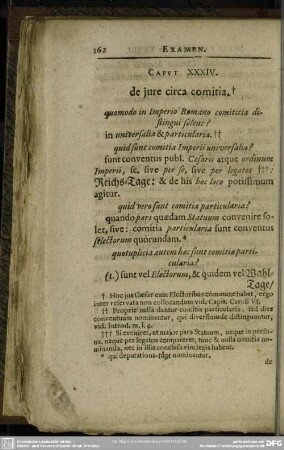 162 EXAMEN.
CAPVT XXXIV.
de jure circa comitia.†
quomodo in Imperio Romano comititia di-
stingui solent?
in universalia & particularia.††
quid sunt comitia Imperii universalia?
sunt conventus publ. Cæsaris atque ordinum
Imperii, se, sive per se, sive per legatos †††:
Reichs-Tage: & de his hoc loco potissimum
agitur.
quid vero sunt comitia particularia?
quando pars quædam Statuum convenire so-
let, sive: comitia particularia sunt conventus
selectorum quorundam.*
quotuplicia autem hac sunt comitia parti-
cularia?
(1.) sunt vel Electorum, & quidem vel Wahl-
Tage/
† Hoc jus Cæsar cum Electoribus commune habet, ergo
inter reservata non collocandum vid. Capit. Caroli VI.
†† Proprie nulla dantur comitia particularia, sed dies
conventuum nominantur, qui diversimode distinguuntur,
vid. Introd. m. l. 9.
††† Si eveniret, ut major pars Statuum, neque in perso-
na, neque per legatos compareret, tunc & nulla comitia no-
minanda, nec in illis conclusa vim legis habent.
* qui deputations-täge nominantur.
de